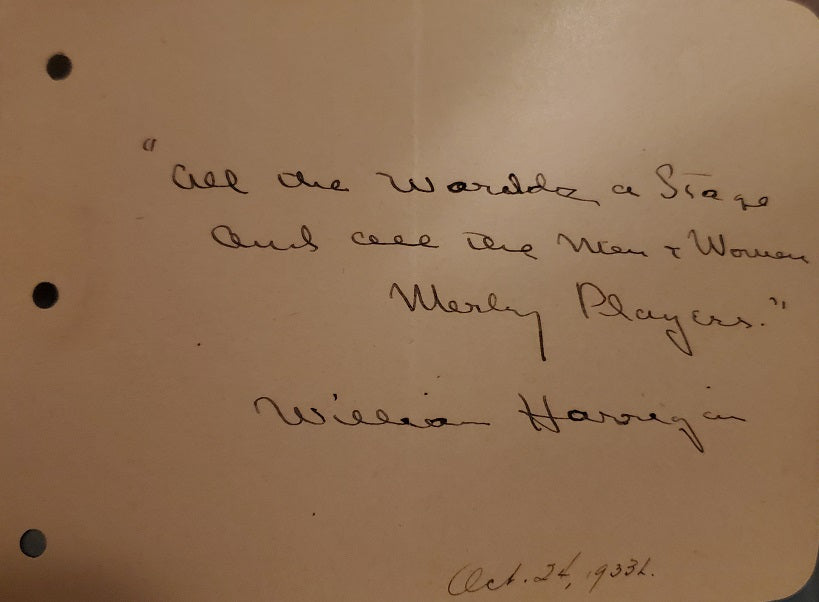 "All the Worlds a Stage
And all the Men & Women
Merly Players."
William Harrigan
Oct. 24, 1933